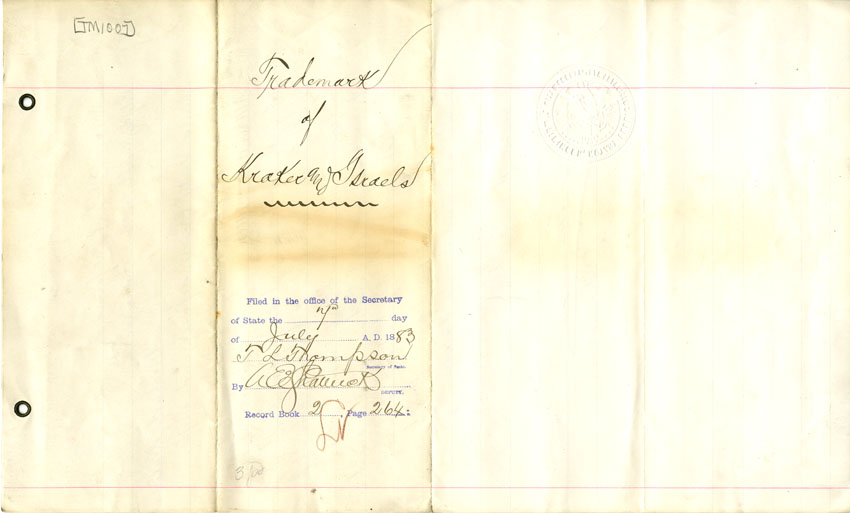 [TM1007]
Trademark
of
Kraker and Israels
Filed in the office of the Secretary
of State the 7th day
of July A. D. 1883
T L Thompson
Secretary of State
By A E
DEPUTY.
Record Book 2, Page 264: